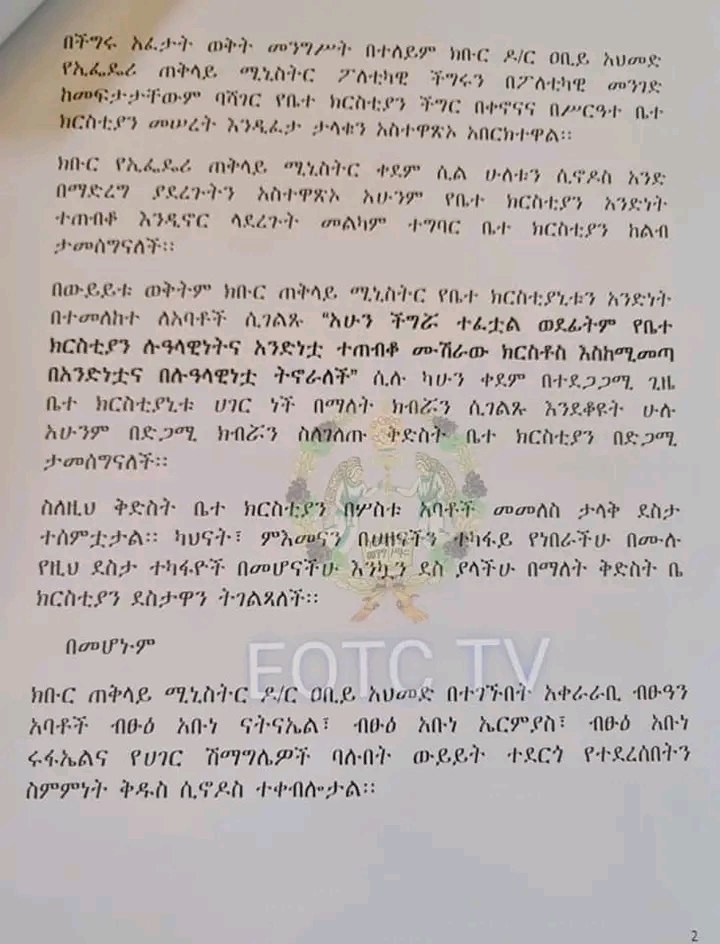 በችግሩ አፈታት ወቅት መንግሥት በተለይም ክቡር ዶ/ር ዐቢይ አህመድ
የኢፌዴሪ ጠቅላይ ሚኒስትር ፖለቲካዊ ችግሩን በፖለቲካዊ መንገድ
ከመፍታታቸውም ባሻገር የቤተ ክርስቲያን ችግር በቀኖናና በሥርዓተ ቤተ
ክርስቲያን መሠረት እንዲፈታ ታላቁን አስተዋጽኦ አበርክተዋል።
ክቡር የኢፌዴሪ ጠቅላይ ሚኒስትር ቀደም ሲል ሁለቱን ሲኖዶስ አንድ
በማድረግ ያደረጉትን አስተዋጽኦ አሁንም የቤተ ክርስቲያን አንድነት
ተጠብቆ እንዲኖር ላደረጉት መልካም ተግባር ቤተ ክርስቲያን ከልብ
ታመሰግናለች።
በውይይቱ ወቅትም ክቡር ጠቅላይ ሚኒስትር የቤተ ክርስቲያኒቱን አንድነት
በተመለከተ ለአባቶች ሲገልጹ "አሁን ችግሯ ተፈቷል ወደፊትም የቤተ
ክርስቲያን ሉዓላዊነትና አንድነቷ ተጠብቆ ሙሽራው ክርስቶስ እስከሚመጣ
በአንድነቷና በሉዓላዊነቷ ትኖራለች" ሲሉ ካሁን ቀደም በተደጋጋሚ ጊዜ
ቤተ ክርስቲያኒቱ ሀገር ነች በማለት ክብሯን ሲገልጹ እንደቆዩት ሁሉ
አሁንም በድጋሚ ክብሯን ስለገለጡ ቅድስት ቤተ ክርስቲያን በድጋሚ
ታመሰግናለች።
ስለዚህ ቅድስት ቤተ ክርስቲያን በሦስቱ አባቶች መመለስ ታላቅ ደስታ
ተሰምቷታል። ካህናት፣ ምእመናን በሀዘናችን ተካፋይ የነበራችሁ በሙሉ
የዚህ ደስታ ተካፋዮች በመሆናችሁ እንኳን ደስ ያላችሁ በማለት ቅድስት ቤ
ክርስቲያን ደስታዋን ትገልጻለች።
በመሆኑም
EOTC TV
ክቡር ጠቅላይ ሚኒስትር ዶ/ር ዐቢይ አህመድ በተገኙበት አቀራራቢ ብፁዓን
አባቶች ብፁዕ አቡነ ናትናኤል፣ ብፁዕ አቡነ ኤርምያስ፣ ብፁዕ አቡነ
ሩፋኤልና የሀገር ሽማግሌዎች ባሉበት ውይይት ተደርጎ የተደረሰበትን
ስምምነት ቅዱስ ሲኖዶስ ተቀብሎታል።
2